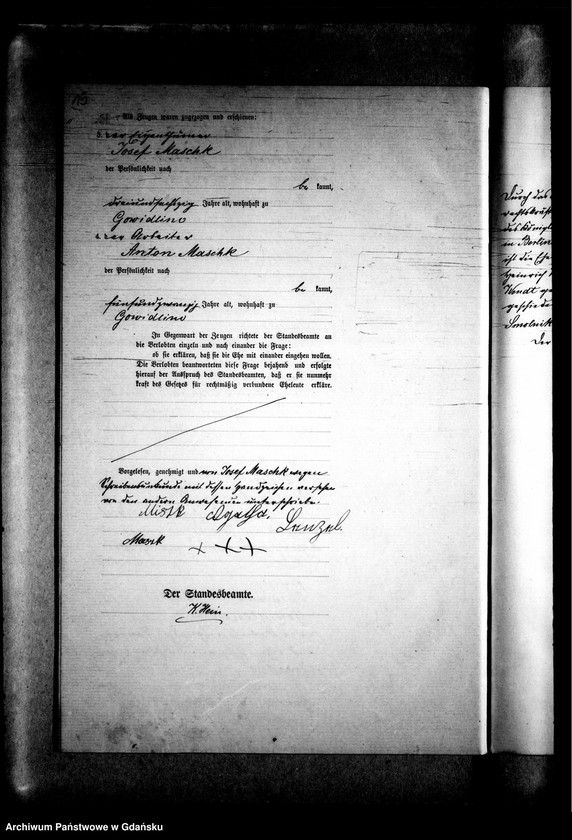 Als Zeugen waren zugezogen und erschienen:
der Eigenthümer
Josef Maschk
der Persönlichkeit nach
be kannt,
dreiundsechzig Jahre alt, wohnhaft zu
Gowidlino
der Arbeiter
Anton Maschk
der Persönlichkeit nach
be kannt,
fünfundzwanzig Jahre alt, wohnhaft zu
Gowidlino
In Gegenwart der Zeugen richtete der Standesbeamte an
die Verlobten einzeln und nach einander die Frage:
ob sie erklären, daß sie die Ehe mit einander eingehen wollen.
Die Verlobten beantworteten diese Frage bejahend und erfolgte
hierauf der Ausspruch des Standesbeamten, daß er sie nunmehr
kraft des Gesetzes für rechtmäßig verbundene Eheleute erkläre.
Vorgelesen, genehmigt und von Josef Maschk wegen
Schreibensunkunde mit dessen Handzeichen versehen
von den andern unterschrieben
Agatha
Der Standesbeamte.
Durch das
des Königl
in Berlin
ist die Ehe
Heinrich
geschieden
Der
Archiwum Państwowe w Gdańsku